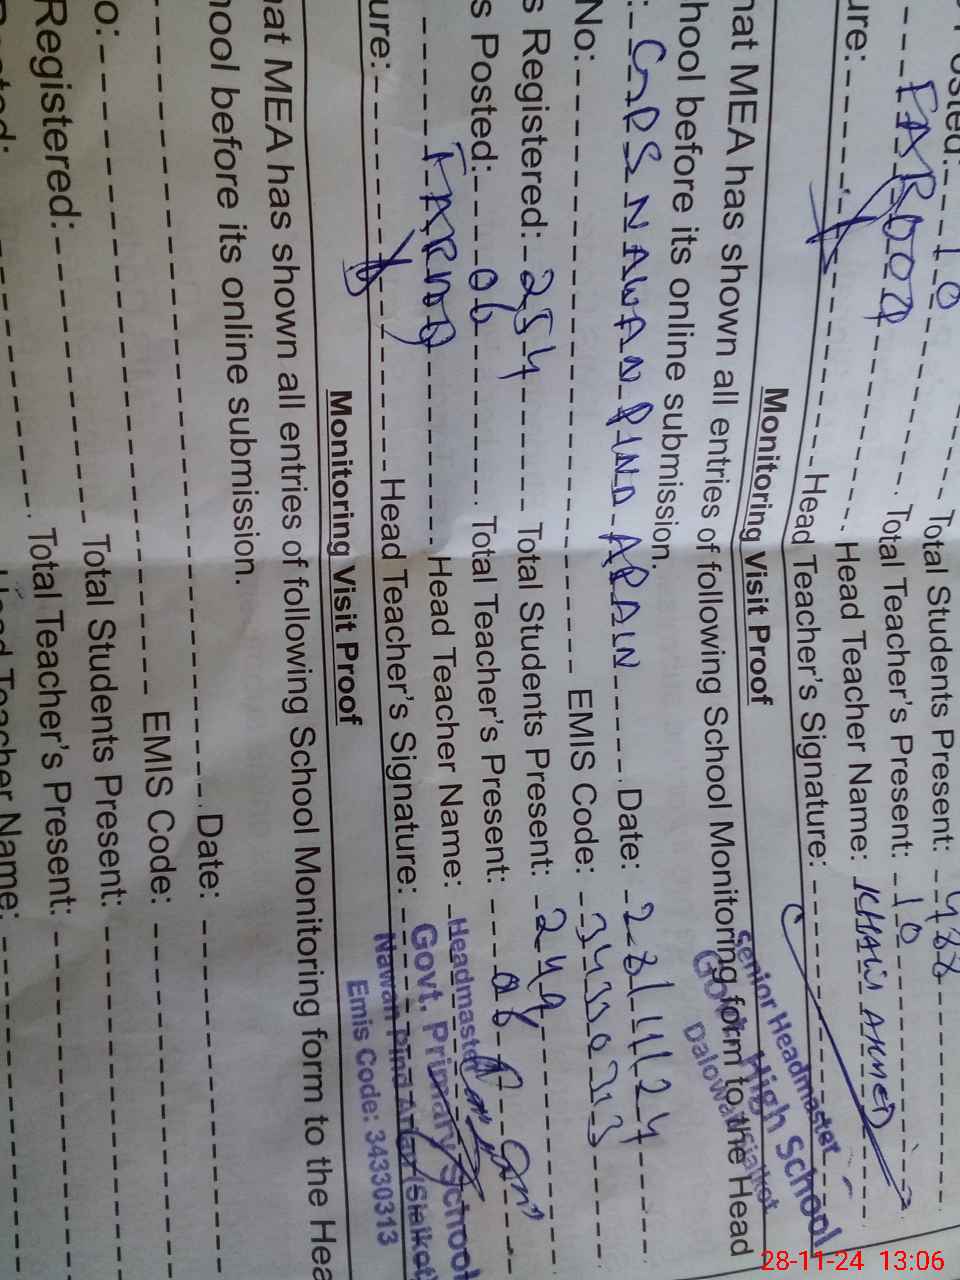 Posted: 10 Total Students Present: 488
FAROOQ Total Teacher's Present: 10
ure: Head Teacher Name: KHALIL AHMED
Head Teacher's Signature:
Senior Headmaster
High School
Monitoring Visit Proof
hat MEA has shown all entries of following School Monitoring form to the Head
hool before its online submission.
: GPS NAWAN PIND ARAIN Date: 28/11/24
No: EMIS Code: 34330313
s Registered: 254 Total Students Present: 249
s Posted: 06 Total Teacher's Present: 06
FAROOQ Head Teacher Name:
ure: Head Teacher's Signature:
Headmaster
Govt. Primary School
Nawan Pind (Sialkot)
Emis Code: 34330313
Monitoring Visit Proof
hat MEA has shown all entries of following School Monitoring form to the Hea
hool before its online submission.
Date:
o: EMIS Code:
Registered: Total Students Present:
Total Teacher's Present:
Head Teacher Name:
28-11-24 13:06